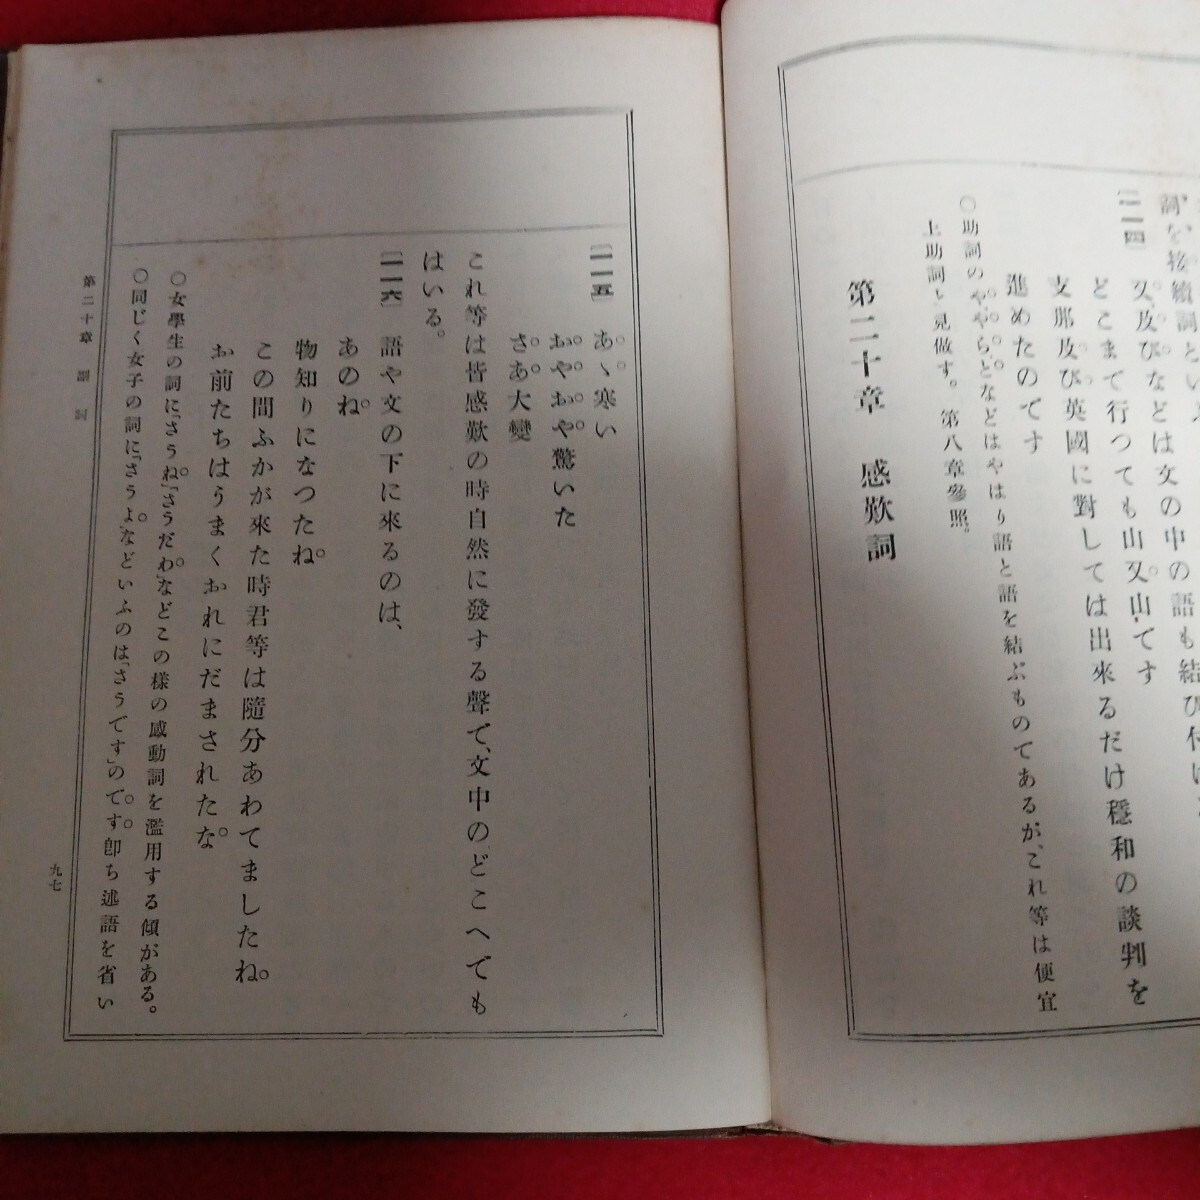 詞を接續詞とい
〔二一四〕 又、及びなどは文の中の語も結び付け
どこまで行つても山又山です
支那及び英國に對しては出來るだけ穩和の談判を
進めたのです
〇助詞のや、やら、となどはやはり語と語を結ぶものであるが、これ等は便宜
上助詞と見做す。第八章參照。
第二十章 感歎詞
〔二一五〕 あゝ寒い
おやおや驚いた
さあ大變
これ等は皆感歎の時自然に發する聲で、文中のどこへでも
はいる。
〔二一六〕 語や文の下に來るのは、
あのね
物知りになつたね。
この間ふかが來た時君等は隨分あわてましたね。
お前たちはうまくおれにだまされたな
〇女學生の詞に「さうね」「さうだわ」などこの樣の感動詞を濫用する傾がある。
〇同じく女子の詞に「さうよ」などいふのは「さうです」のです卽ち述語を省い
第二十章
九七